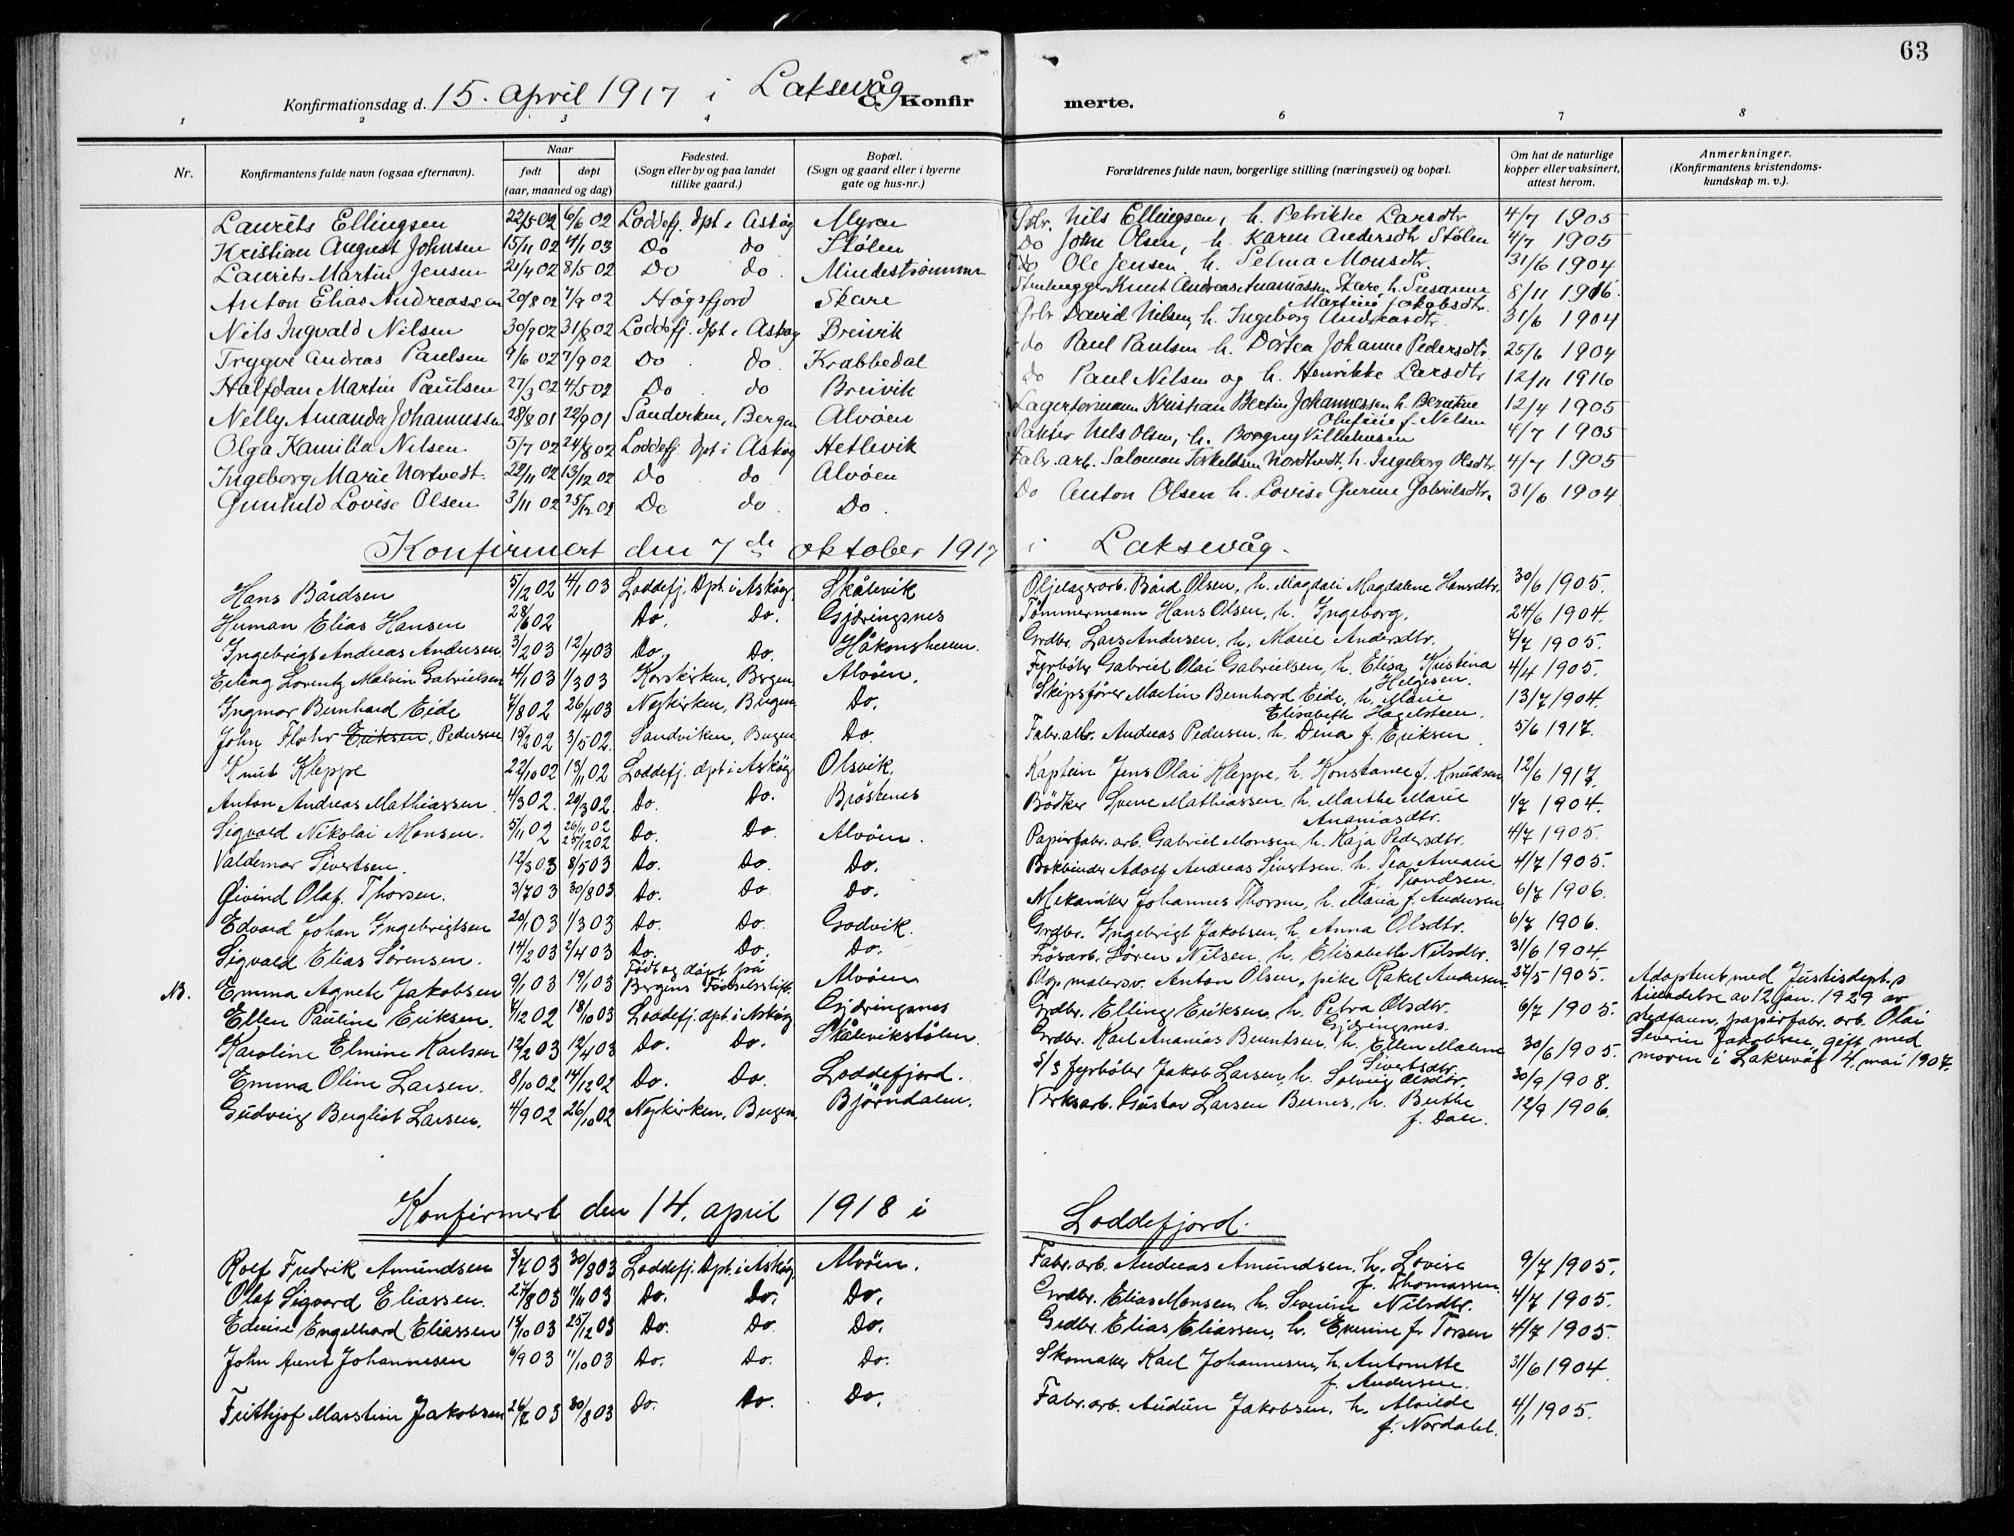 63
Konfirmationsdag d. 15. april 1917 i Laksevåg
C. Konfir merte.
1 2 3 4 6 7 8
Nr. Konfirmantens fulde navn (ogsaa efternavn). Naar født døpt (aar, maaned og dag) Fødested. (Sogn eller by og paa landet tillike gaard.) Bopæl. (Sogn og gaard eller i byerne gate og hus-nr.) Forældrenes fulde navn, borgerlige stilling (næringsvei) og bopæl. Om hat de naturlige kopper eller vaksinert, attest herom. Anmerkninger. (Konfirmantens kristendomskundskap m. v.).
Laurits Ellingsen 22/5 02 6/6 02 Loddefj. dpt i Askøy Myren Nils Ellingsen, h. Petrikke Larsdtr 4/7 1905
Kristian August Johnsen 15/11 02 4/1 03 Do do Stølen Do John Olsen, h. Karen Andersdtr Stølen 4/7 1905
Laurits Martin Jensen 21/4 02 8/5 02 Do do. Mindestrømmen Do Ole Jensen h. Selma Monsdtr. 31/6 1904
Anton Elias Andreassen 20/8 02 7/9 02 Høgsfjord Skare Knut Andreas Ananiassen Skare, h. Susanne Martine Jakobsdtr. 8/11 1916.
Nils Ingvald Nilsen 30/9 02 31/8 02 Loddefj. dpt i Askøy Breivik Grbr David Nilsen, h. Ingeborg Andreasdtr. 31/6 1904
Trygve Andreas Paulsen 9/6 02 7/9 02 Do. Do. Krabbedal do Paul Paulsen h. Dortea Johanne Pedersdtr 25/6 1904
Halfdan Martin Paulsen 27/3 02 4/5 02 Do. do Breivik Do Paul Nilsen og h. Henrikke Larsdtr 12/11 1916
Nelly Amanda Johannessen 28/8 01 22/9 01 Sandviken, Bergen Alvøen Lagerformann Kristian Bertin Johannessen h. Berntine Olufine f. Nelsen 12/4 1905
Olga Kamilla Nilsen 5/7 02 24/8 02 Loddefj. dpt i Askøy Hetlevik Nils Olsen, h. Borgny Villumsen 4/7 1905
Ingeborg Marie Nortvedt. 22/11 02 13/12 02 Do do. Alvøen Fabr. arb. Salomon Torkeldsen Nordtvedt, h. Ingeborg Olsdtr. 4/7 1905
Gunhild Lovise Olsen 3/11 02 25/12 02 Do do. Do. Do Anton Olsen h. Lovise Gurine Gabrielsdtr. 31/6 1904
Konfirmert den 7de oktober 1917 i Laksevåg.
Hans Bårdsen 5/12 02 4/1 03 Loddefj. Dpt. i Askøy. Skålevik Oljelagerarb. Bård Olsen, h. Magdali Magdalene Hansdtr. 30/6 1905.
Herman Elias Hansen 28/6 02 Do. Do. Gjæringsnes Tømmermann Hans Olsen, h. Ingeborg. 24/6 1904.
Ingebrigt Andreas Andersen 3/2 03 12/4 03 Do. Do. Håkonshellen. Grdbr. Lars Andersen, h. Marie Andersdtr. 7/7 1905.
Erling Lorentz Malvin Gabrielsen 4/1 03 1/3 03 Korskirken, Bergen Alvøen. Fyrbøter Gabriel Olai Gabrielsen, h. Elisa Kristina Helgesen. 4/4 1905.
Ingmar Bernhard Eide 7/8 02 26/4 03 Nykirken, Bergen Do. Skipsfører Martin Bernhard Eide, h. Marie Elisabeth Hagelsteen. 13/7 1904.
John Flohr Eriksen, Pedersen 15/2 02 3/5 02. Sandviken, Bergen Do. Fabr. arb. Andreas Pedersen, h. Dina f. Eriksen 5/6 1917.
Knut Kleppe 22/10 02 13/11 02 Loddefj. dpt. i Askøy Olsvik. Kaptein Jens Olai Kleppe, h. Konstance f. Knudsen 12/6 1917.
Anton Andreas Mathiassen 4/3 02. 29/3 02. Do. Do. Brøstenes Bødker Sverre Mathiassen h. Marthe Marie Ananiasdtr. 1/7 1904.
Sigvard Nikolai Monsen. 5/11 02 26/11 02 25/12 02 Do. Do. Alvøen. Papirfabr. arb. Gabriel Monsen, h. Kaja Pedersdtr. 4/7 1905.
Valdemar Sivertsen. 12/3 03 8/5 03 Do. Do. Do. Bokbinder Adolf Andreas Sivertsen. h. Tea Amalie f. Trondsen. 4/7 1905.
Øivind Olaf Thorsen. 3/7 03 30/8 03 Do. Do. Do. Mekaniker Johannes Thorsen, h. Maria f. Andersen 6/7 1906.
Edvard Johan Ingebrigtsen 20/1 03 1/3 03 Do. Do. Godvik. Grdbr. Ingebrigt Jakobsen, h. Anna Olsdtr. 6/7 1906.
Sigvald Elias Sørensen. 14/2 03 2/4 03 Do. Do. Do. Løsarb. Søren Nilsen, h. Elisabeth Nilsdtr. 31/6 1904.
NB. Emma Agnete Jakobsen 9/1 03 19/1 03 Født og døpt på Bergens Fødselsstift. Alvøen Anton Olsen, pike Rakel Andersen 27/5 1905. Adoptert med Justisdept.s
tilladelse av 12 jan. 1929 av
Ellen Pauline Eriksen. 7/12 02 18/10 03 Loddefj. dpt. i Askøy Gjæringsnes Grdbr. Elling Eriksen h. Petra Olsdtr. Gjæringsnes. 6/7 1905. stedfaren, papirfabr. arb. Olai
Karoline Elmine Karlsen 12/2 03 12/4 03 Do. Do. Skålevikstølen. Grdbr. Karl Ananias Berntsen. h. Ellen Malene Sivertsdtr. 30/6 1905. Severin Jakobsen, gift med
moren i Laksevåg 4 mai 1907.
Emma Oline Larsen. 8/10 02 14/12 02 Do. Do. Loddefjord. S/S Fyrbøter Jakob Larsen, h. Solveig Olsdtr. 30/9 1908.
Gudveig Bergliot Larsen. 4/9 02 26/10 02 Nykirken, Bergen Bjørndalen. Verksarb. Gustav Larsen Bernes, h. Berthe f. Dale. 12/9 1906.
Konfirmert den 14. april 1918 i Loddefjord.
Rolf Fredrik Amundsen 3/7 03 30/8 03 Loddefj. Dpt. i Askøy. Alvøen. Fabr. arb. Andreas Amundsen. h. Lovise f. Thomassen 9/7 1905.
Olaf Sigvard Eliassen. 27/8 03 1/11 03 Do. Do. Do. Grdbr. Elias Monsen h. Severine Nilsdtr. 4/7 1905.
Edvin Engelhard Eliassen 18/10 03 25/12 03 Do. Do. Do. Grdbr. Elias Eliassen, h. Emine f. Torsen 4/7 1905.
John Arent Johannesen 6/9 03 11/10 03 Do. Do. Do. Skomaker Karl Johannesen, h. Antonette f. Andersen. 31/6 1904
Frithjof Marstein Jakobsen 26/7 03 30/8 03 Do. Do. Do. Fabr. arb. Audun Jakobsen. h. Alvilde f. Nordahl. 4/1 1905.